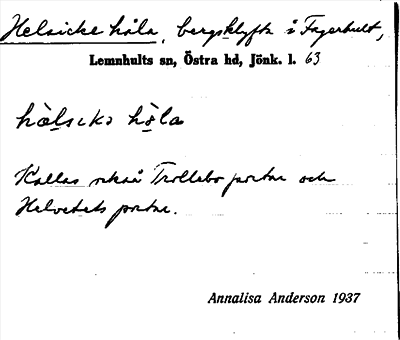 Helsicke håla, bergsklyfta i Fagerhult,
Lemnhults sn, Östra hd, Jönk. l. 63
hälsıkə hòla
Kallas också Trollebo portar och
Helvetets portar.
Annalisa Anderson 1937